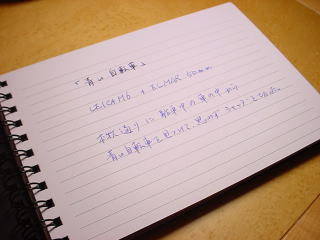 「青い自転車」
LEICA M6 + ELMAR 50mm
本数通りに駐車中の車の中から
青い自転車を見つけて、思わずシャッターを切った。